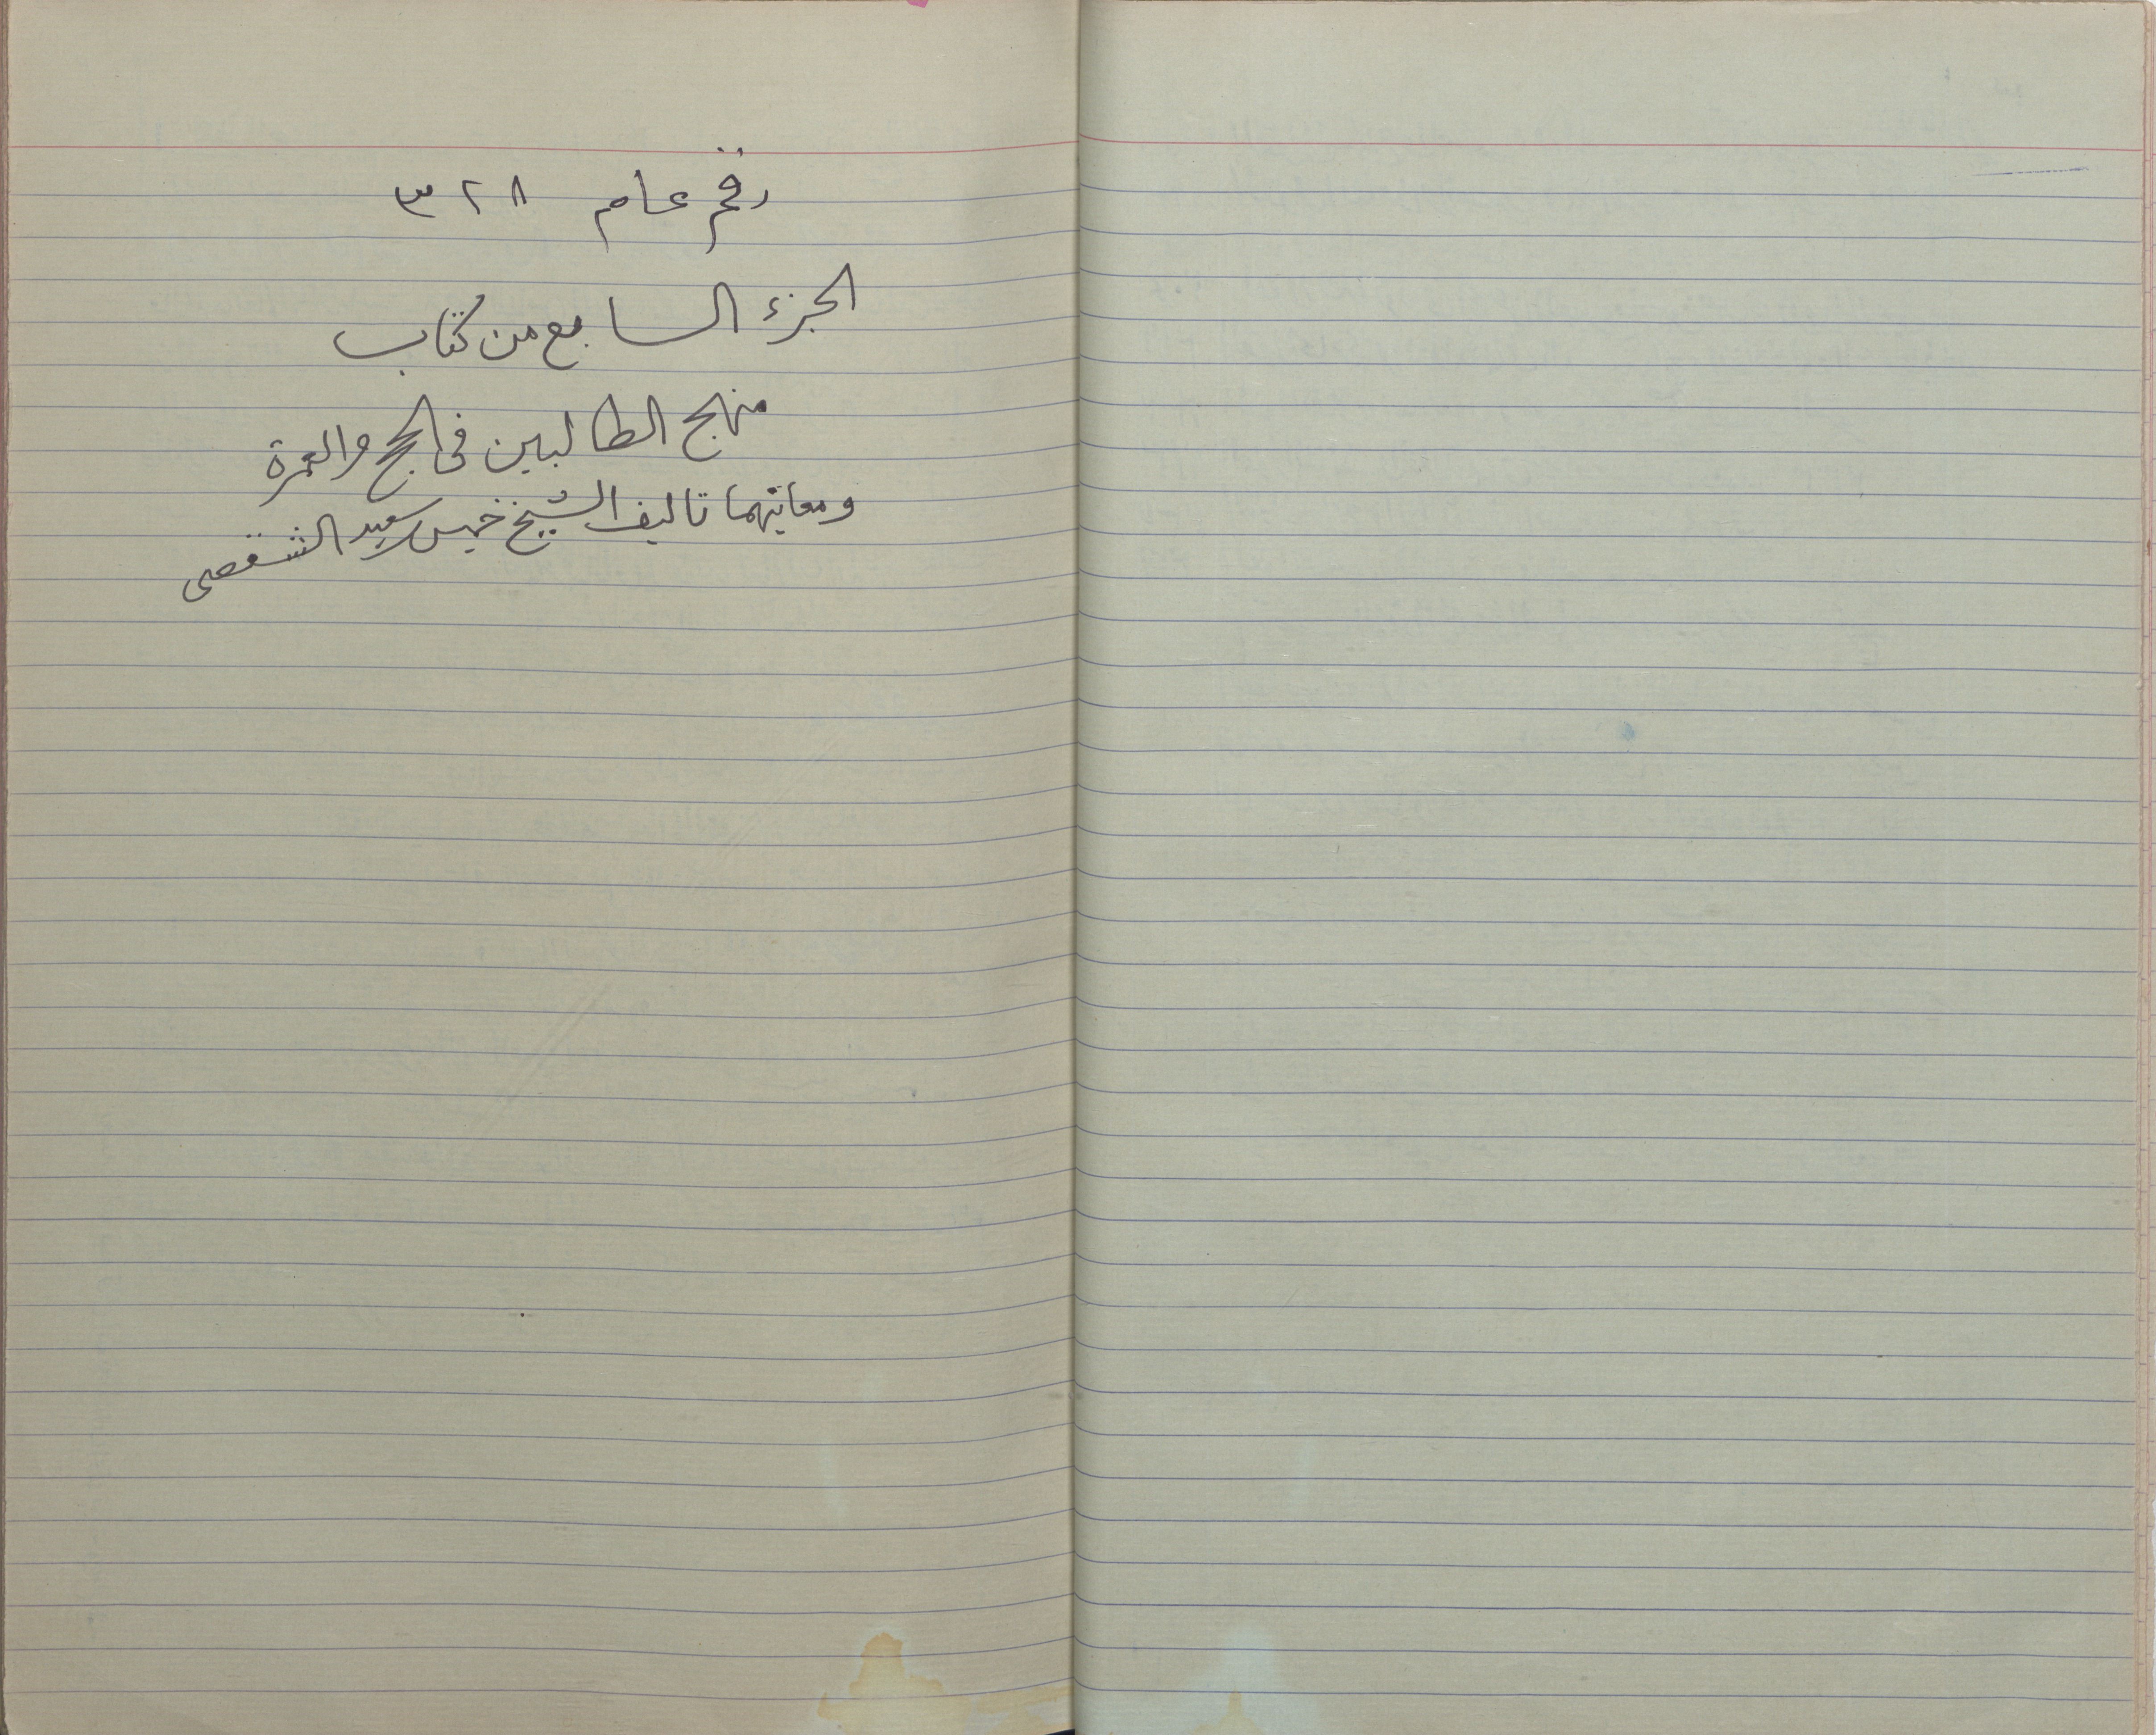 رقم عام ٣٢٨
الجزء السابع من كتاب
منهج الطالبين في الحج والعمرة
ومعانيهما تاليف الشيخ خميس سعيد الشقصي